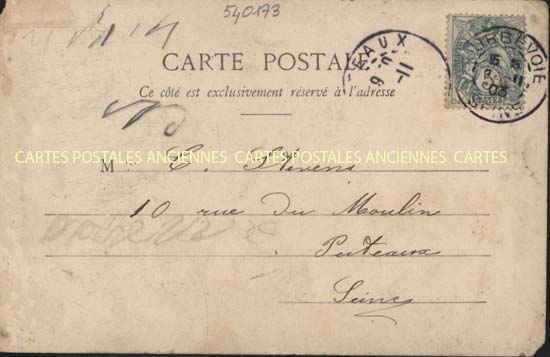 540173
CARTE POSTALE
Ce côté est exclusivement réservé à l'adresse
EAUX
COURBEVOIE
SEINE
15
11
03
CARTES POSTALES ANCIENNES CARTES POSTALES ANCIENNES CARTES
M. E. Stévens
10 rue du Moulin
Puteaux
Seine